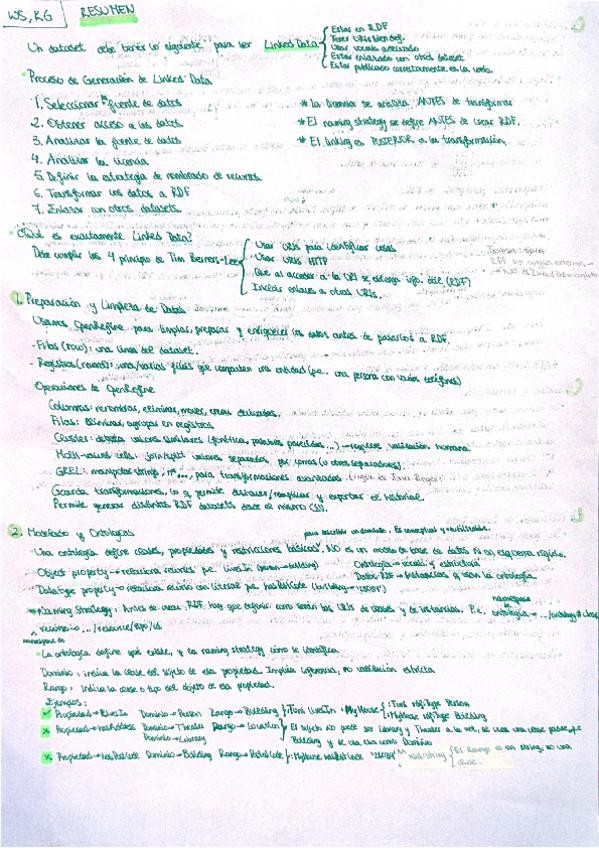 WS, KG RESUMEN
Un dataset debe tener lo siguiente para ser Linked Data
Estar en RDF
Tener URIs bien def.
Usar vocab. adecuado
Estar enlazado con otros dataset
Estar publicado correctamente en la web.
Proceso de Generación de Linked Data
1. Seleccionar fuente de datos
2. Obtener acceso a los datos
3. Analizar la fuente de datos
4. Analizar la licencia
5. Definir la estrategia de nombrado de recursos
6. Transformar los datos a RDF
7. Enlazar con otros datasets
* La licencia se analiza ANTES de transformar
* El naming strategy se define ANTES de crear RDF.
* El linking es POSTERIOR a la transformación.
¿Qué es exactamente Linked Data?
Debe cumplir los 4 principio de Tim Berners-Lee
Usar URIs para identificar cosas
Usar URIs HTTP
Que al acceder a la URI se obtenga info. útil (RDF)
Incluir enlaces a otras URIs.
1. Preparación y Limpieza de Datos
Usamos OpenRefine para limpiar, preparar y enriquecer los datos antes de pasarlos a RDF.
- Filas (row): una línea del dataset.
- Registros (record): una/varias filas que comparten una entidad (p.e. una persona con varios teléfonos)
Operaciones de OpenRefine
Columnas: renombrar, eliminar, mover, crear derivadas.
Filas: eliminar, agrupar en registros
Cluster: detecta valores similares (fonética, palabras parecidas...) → requiere validación humana
Multi-values cells: join/split valores separados por comas (u otros separadores).
GREL: manipular strings, nº, ..., para transformaciones avanzadas.
Guarda transformaciones, lo q permite deshacer/reaplicar y exportar el historial.
Permite generar distintos RDF datasets desde el mismo CSV.
2. Modelado y Ontologías
para describir un dominio. Es conceptual y reutilizable.
Una ontología define clases, propiedades y restricciones básicas. NO es un modelo de base de datos ni un esquema rígido.
Object property → relaciona recursos p.e. LivesIn (person → building)
Ontología → vocab y estructura
Datatype property → relaciona recurso con literal p.e. hasPostCode (building →
Datos RDF → instancias q usan la ontología
* Naming Strategy: Antes de crear RDF hay que definir cómo serán las URIs de clases y de instancias. P.e. ontología → .../ontology#class
recursos → .../resource/tipo/id
La ontología define qué existe, y la naming strategy cómo se identifica.
Dominio: indica la clase del sujeto de esa propiedad. Implica inferencia, no validación estricta
Rango: indica la clase o tipo del objeto de esa propiedad.
Ejemplos:
Propiedad → livesIn Dominio → Person Rango → Building :Timi livesIn :MyHouse :Timi rdf:type Person
:MyHouse rdf:type Building
Propiedad → hasAddress Dominio → Theater Rango → Location El sujeto no puede ser Library y Theater a la vez, se crea una clase padre
Dominio → Library Building y se usa esa como Dominio
Propiedad → hasPostCode Dominio → Building Rango → PostalCode :MyHouse hasPostCode "28039"^^xsd:string El Rango es un string, no una
clase.